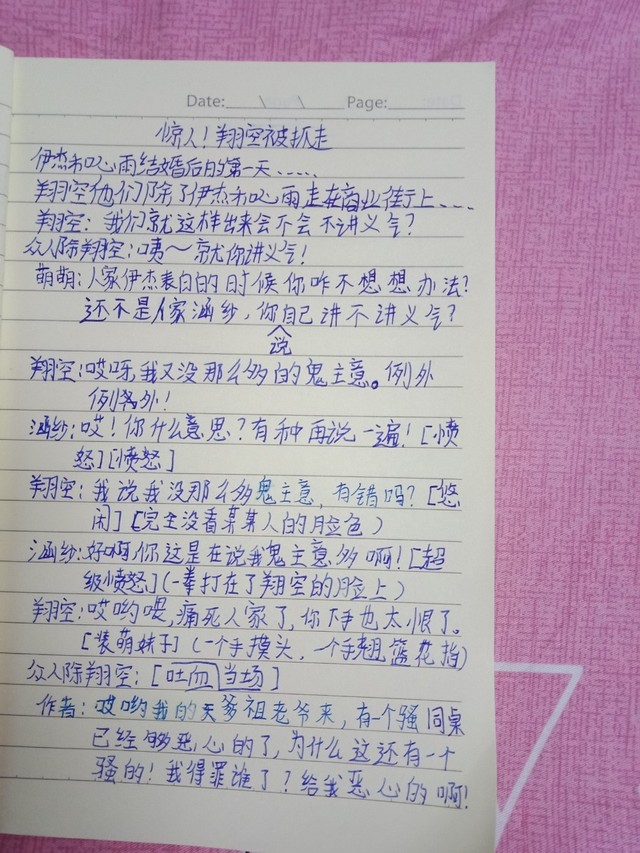 Date: / / Page:
惊人!翔空被抓走
伊杰和心雨结婚后的第一天......
翔空他们除了伊杰和心雨走在商业街上....
翔空:我们就这样出来会不会不讲义气?
众人除翔空:咦~就你讲义气!
萌萌:人家伊杰表白的时候你咋不想想办法?
还不是人家涵纱,你自己讲不讲义气?
说
翔空:哎呀,我又没那么多的鬼主意。例外
例外!
涵纱:哎!你什么意思?有种再说一遍![愤
怒][愤怒]
翔空:我说我没那么多鬼主意,有错吗?[悠
闲][完全没看某某人的脸色)
涵纱:好啊,你这是在说我鬼主意多啊![超
级愤怒](一拳打在了翔空的脸上)
翔空:哎哟喂,痛死人家了,你下手也太恨了。
[装萌妹子](一个手摸头,一个手翘篮花指)
众人除翔空:[吐血当场]
作者:哎哟我的天爹祖老爷来,有一个骚同桌
已经够恶心的了,为什么这还有一个
骚的!我得罪谁了?给我恶心的啊!